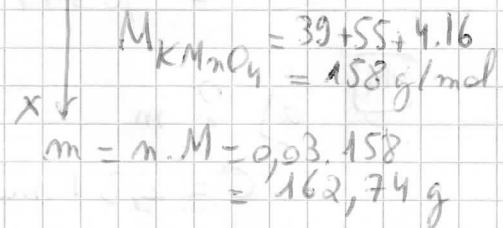 M KMnO4 = 39+55+4.16
= 158 g/mol
x
m = n.M = 0,03.158
= 162,74 g